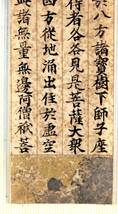 於八方諸寶樹下師子座
侍者各各見是菩薩大衆
四方從地涌出住於虛空
此諸無量無邊阿僧祇菩